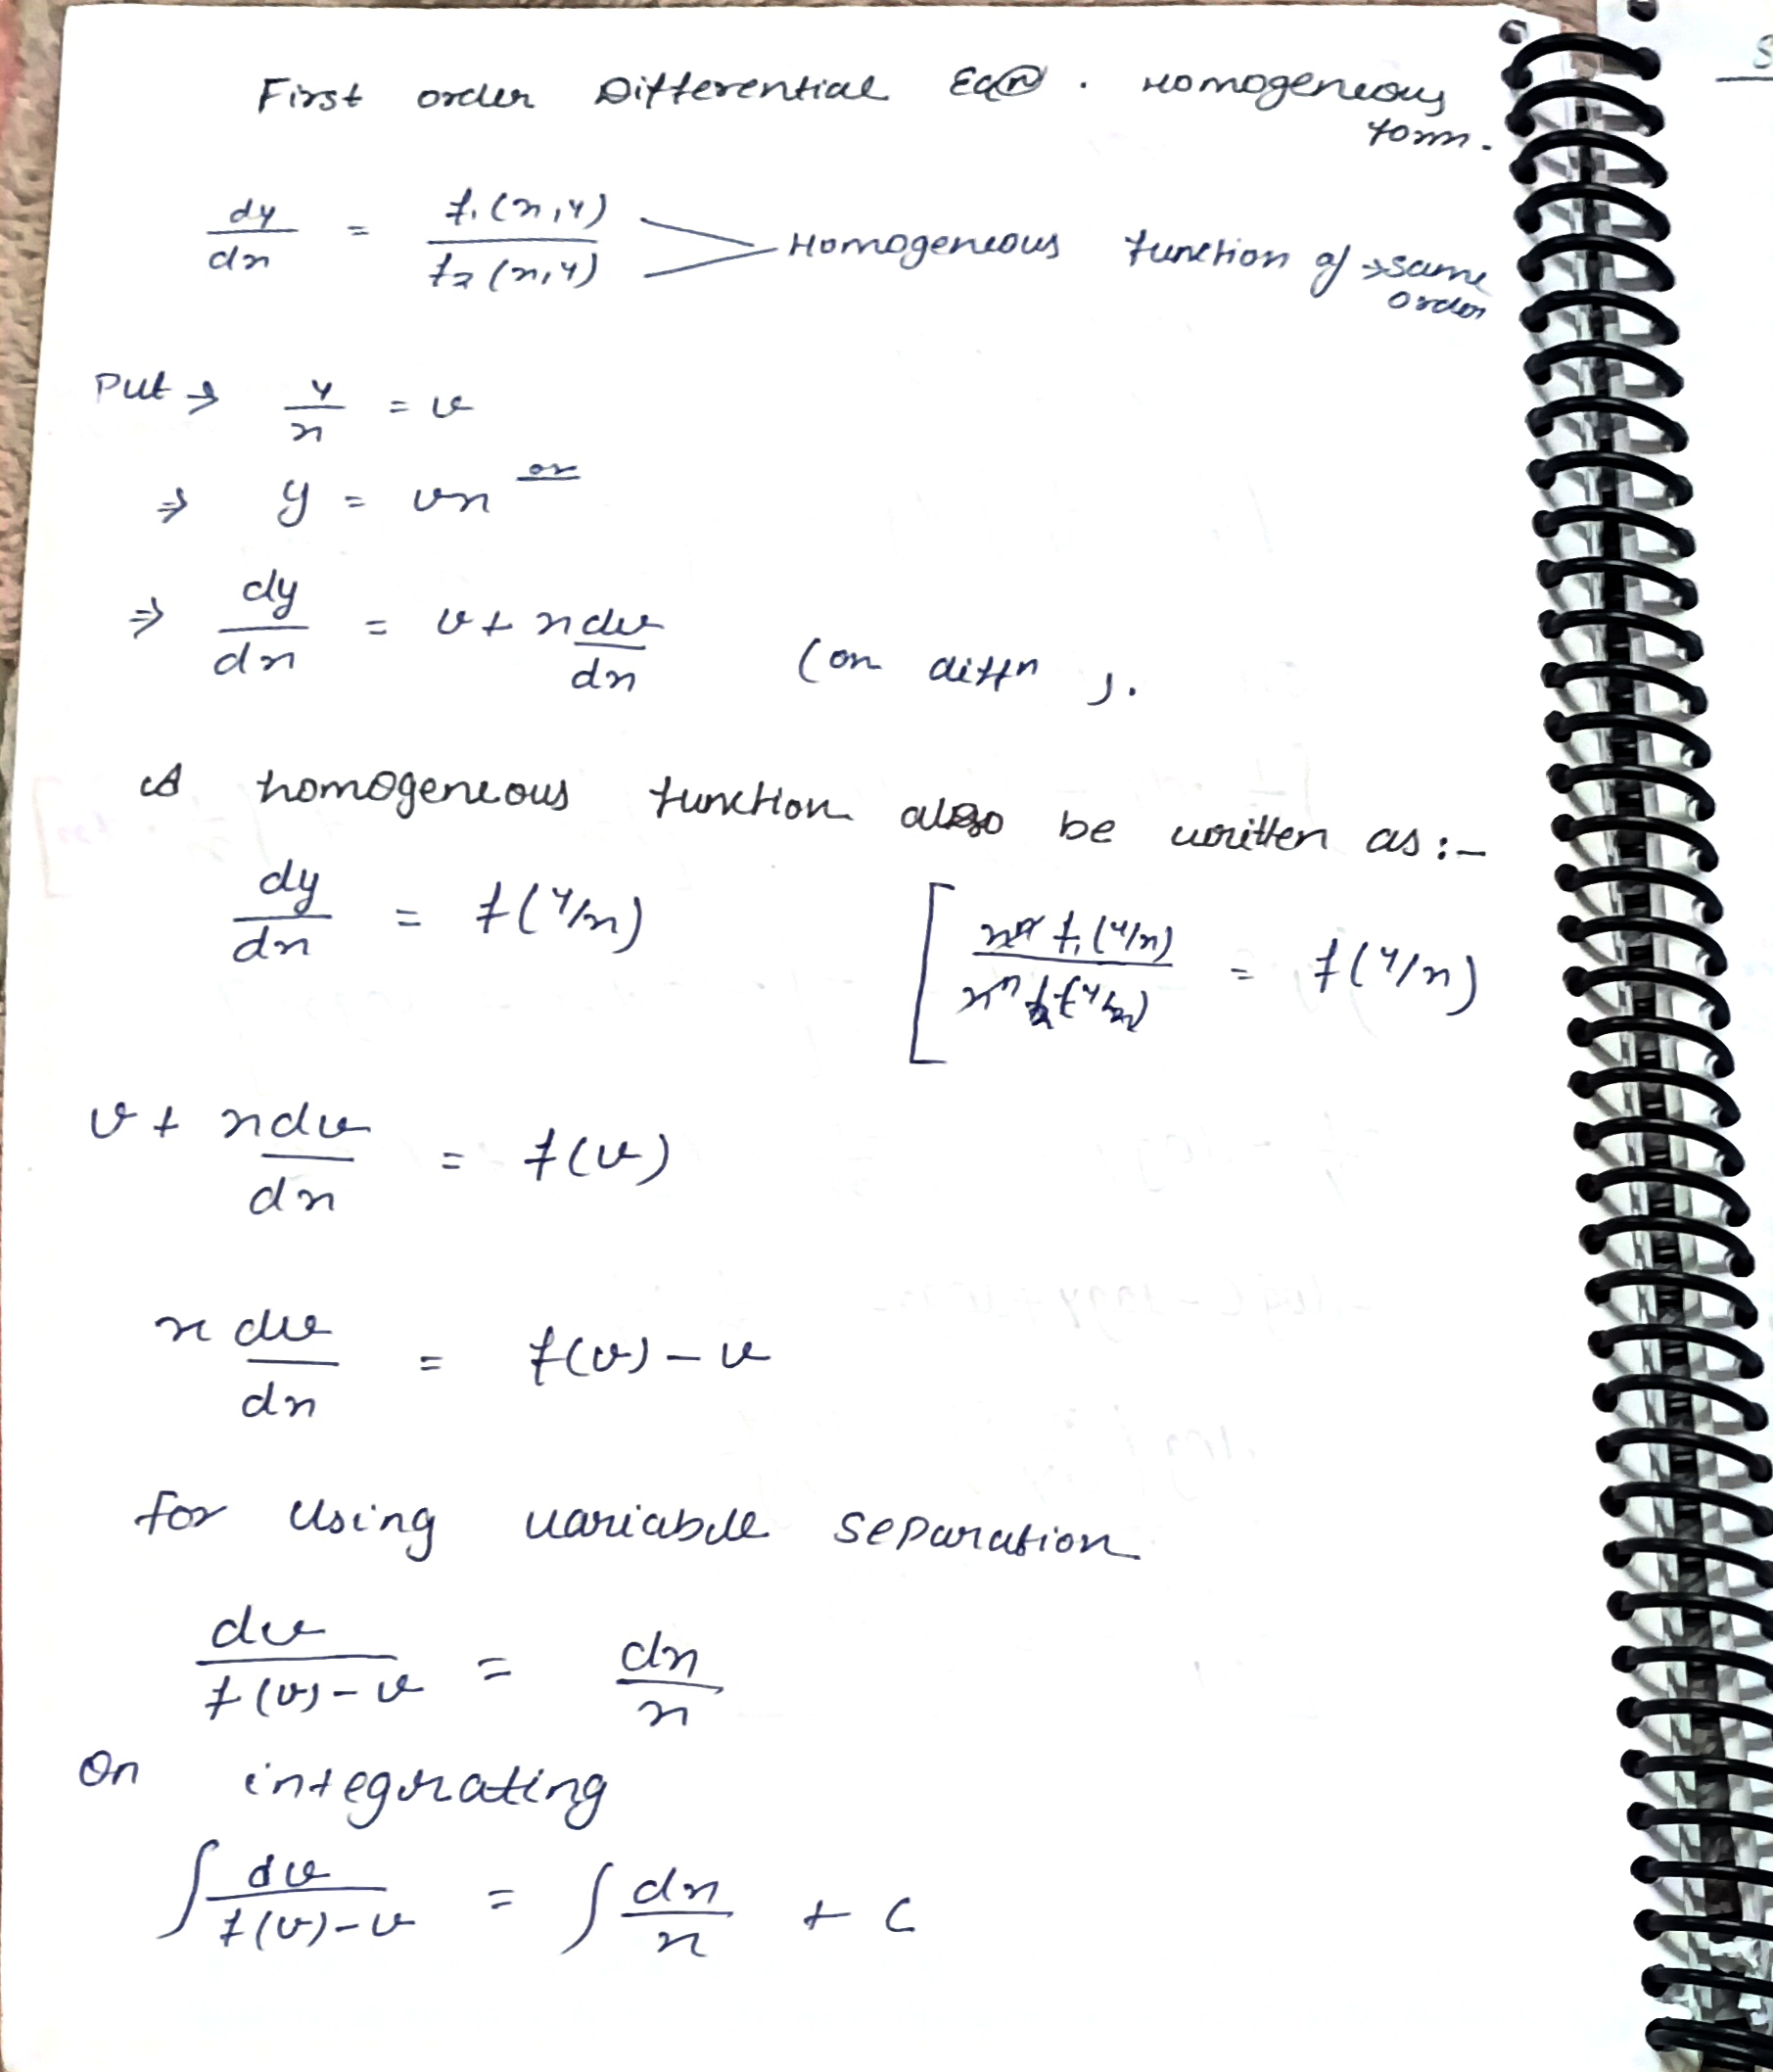 First order Differential Eqn . Homogeneous form.
dy/dx = f₁(x,y)/f₂(x,y) Homogeneous function of → same order
Put → y/x = v
⇒ y = vx or
⇒ dy/dx = v + x dv/dx (on diffn).
A homogeneous function also be written as :-
dy/dx = f(y/x) [ xⁿ f₁(y/x) / xⁿ f₂(y/x) = f(y/x)
v + x dv/dx = f(v)
x dv/dx = f(v) - v
for using variable separation
dv/(f(v) - v) = dx/x
On integrating
∫ dv/(f(v) - v) = ∫ dx/x + C